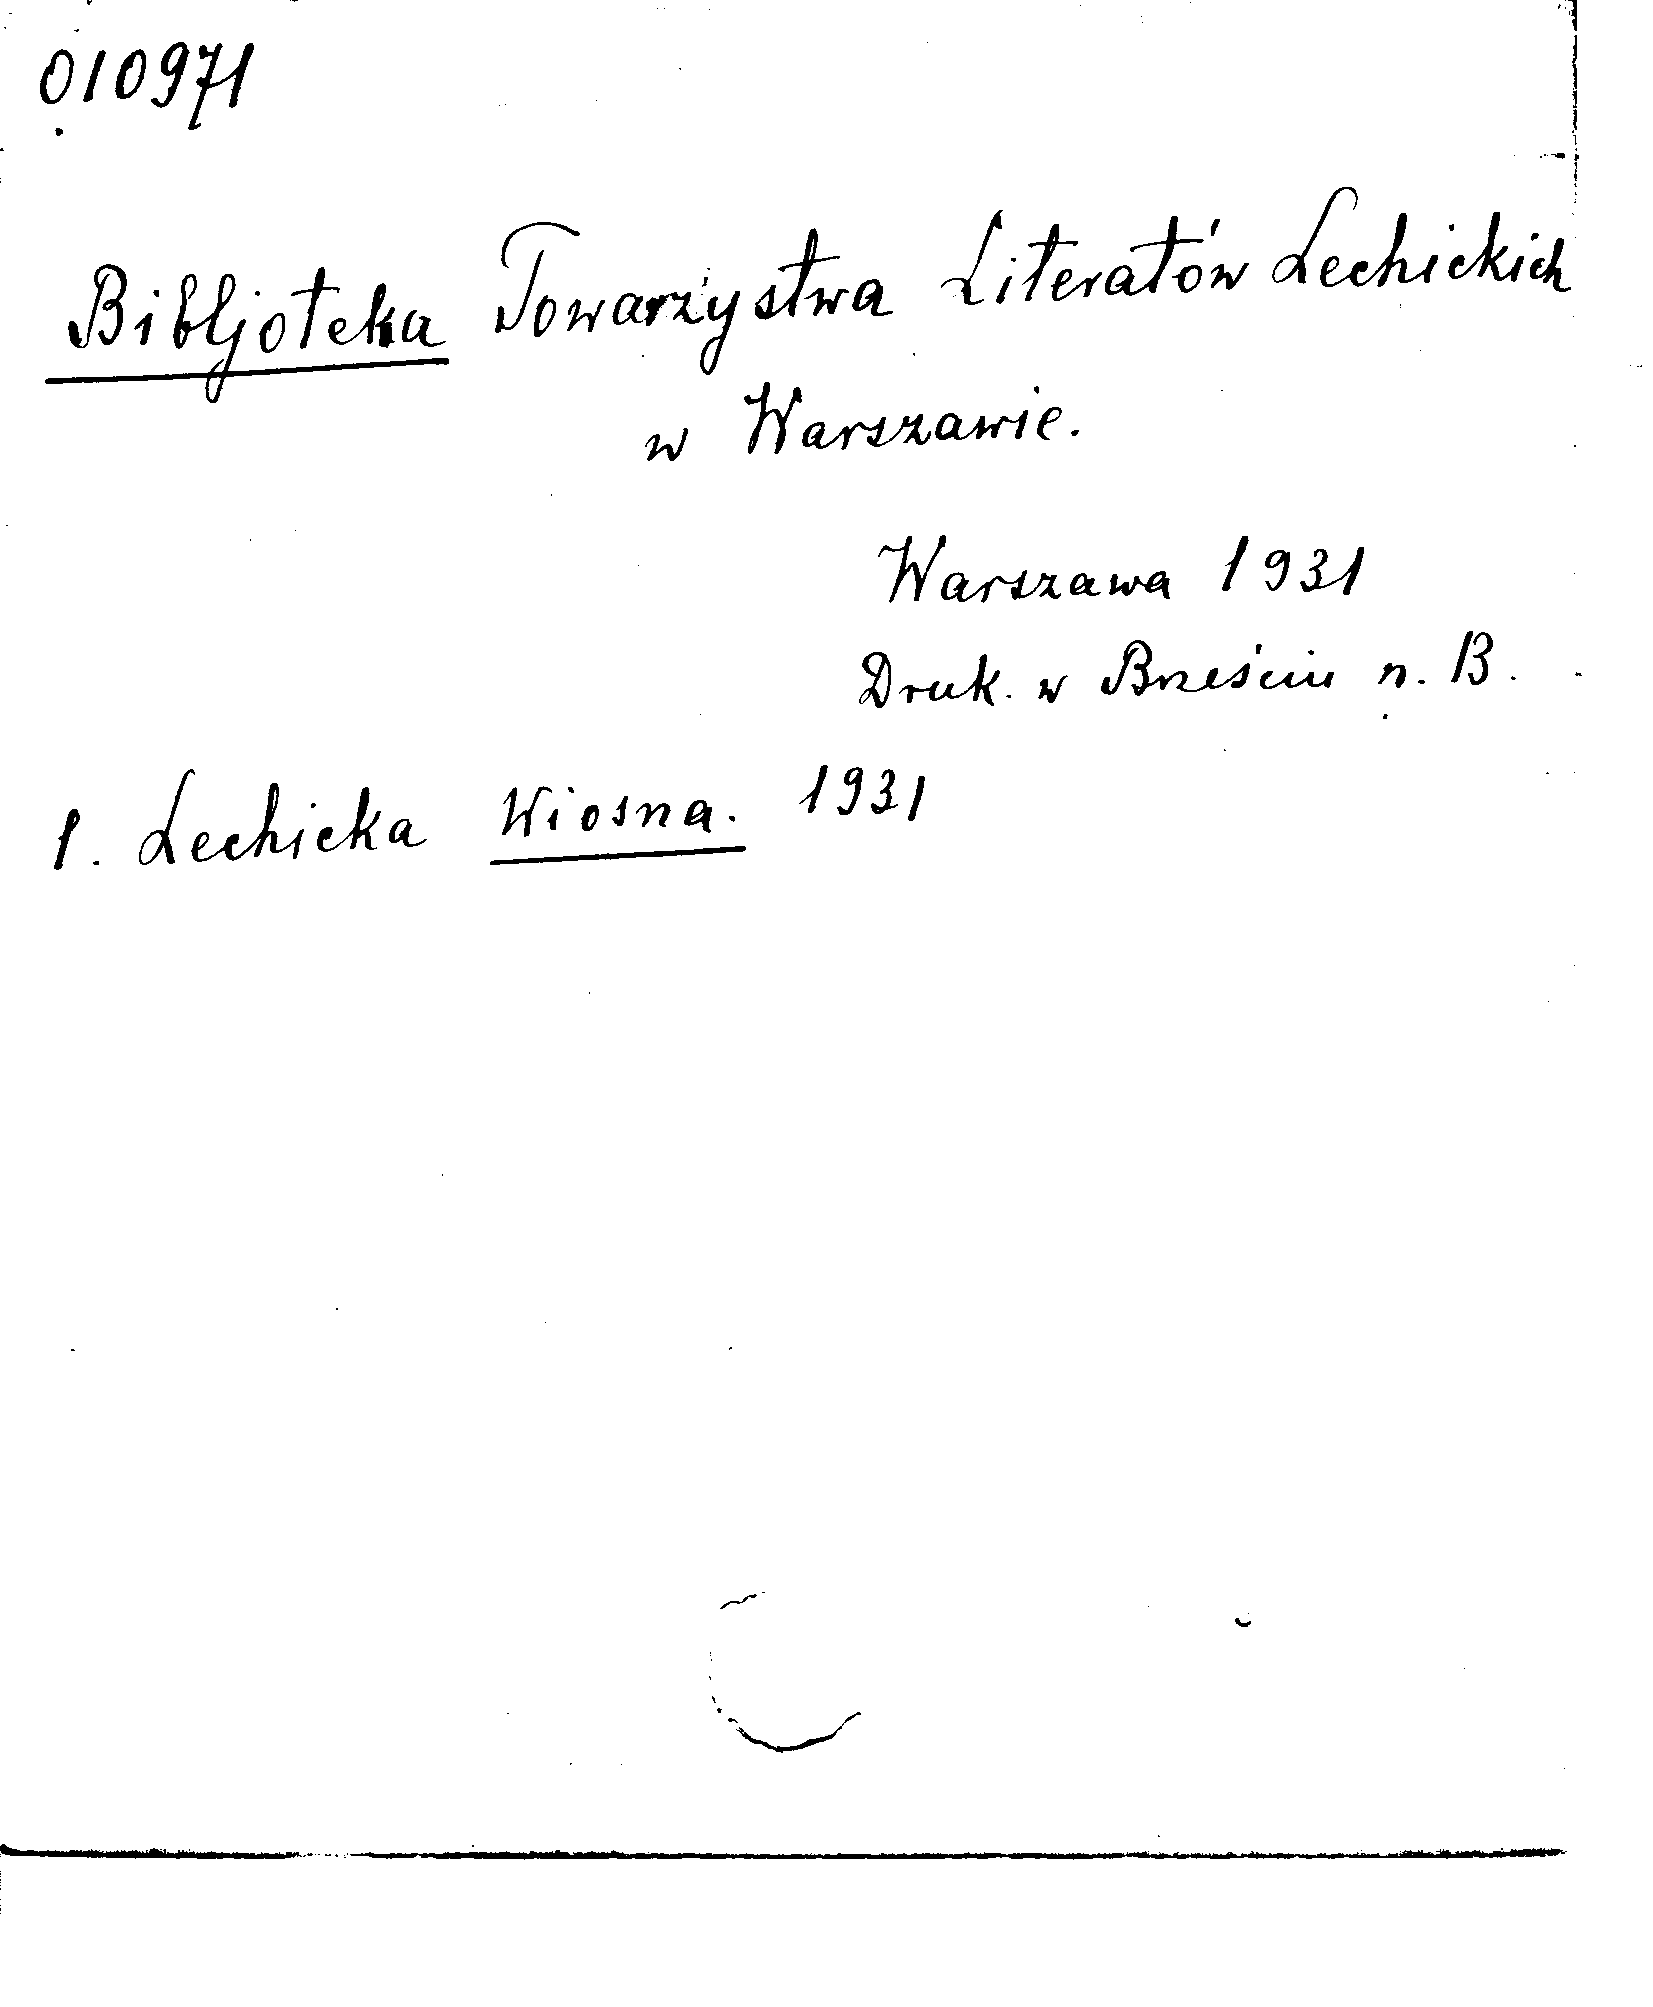 010971
Bibljoteka Towarzystwa Literatów Lechickich
w Warszawie.
Warszawa 1931
Druk. w Brześciu n. B.
1. Lechicka Wiosna. 1931